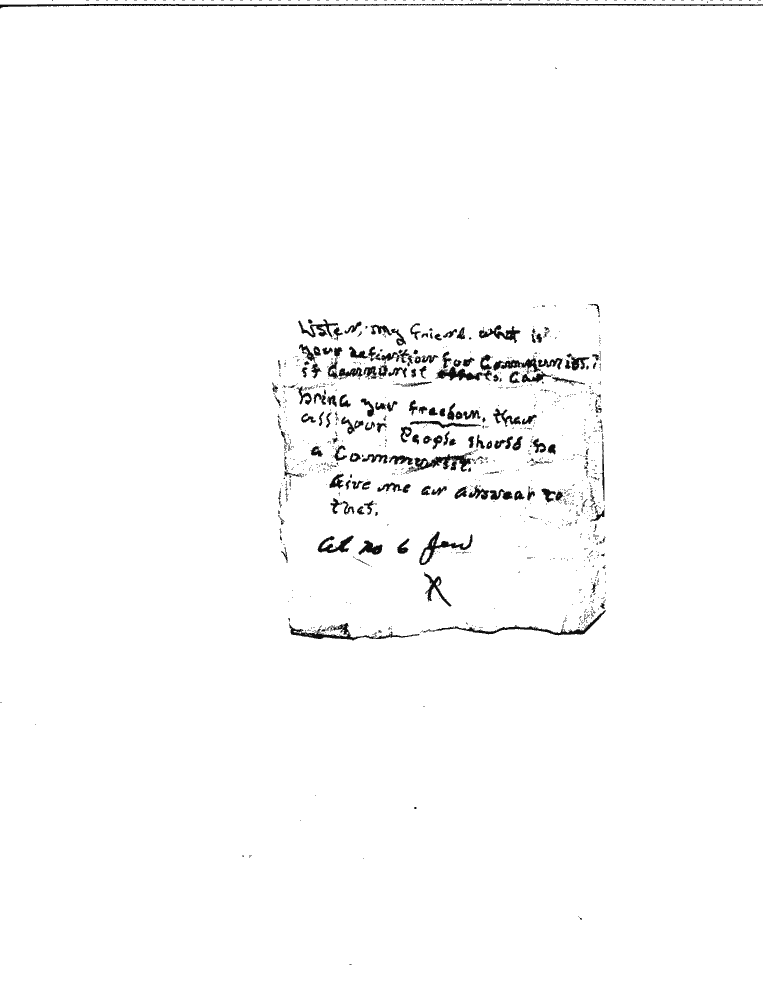 Listen, my friend. what is
your definition for Communism?
if Communist efforts. Can
bring your freedom, then
all your People should be
a Communist.
Give me an answear to
that.
no 6